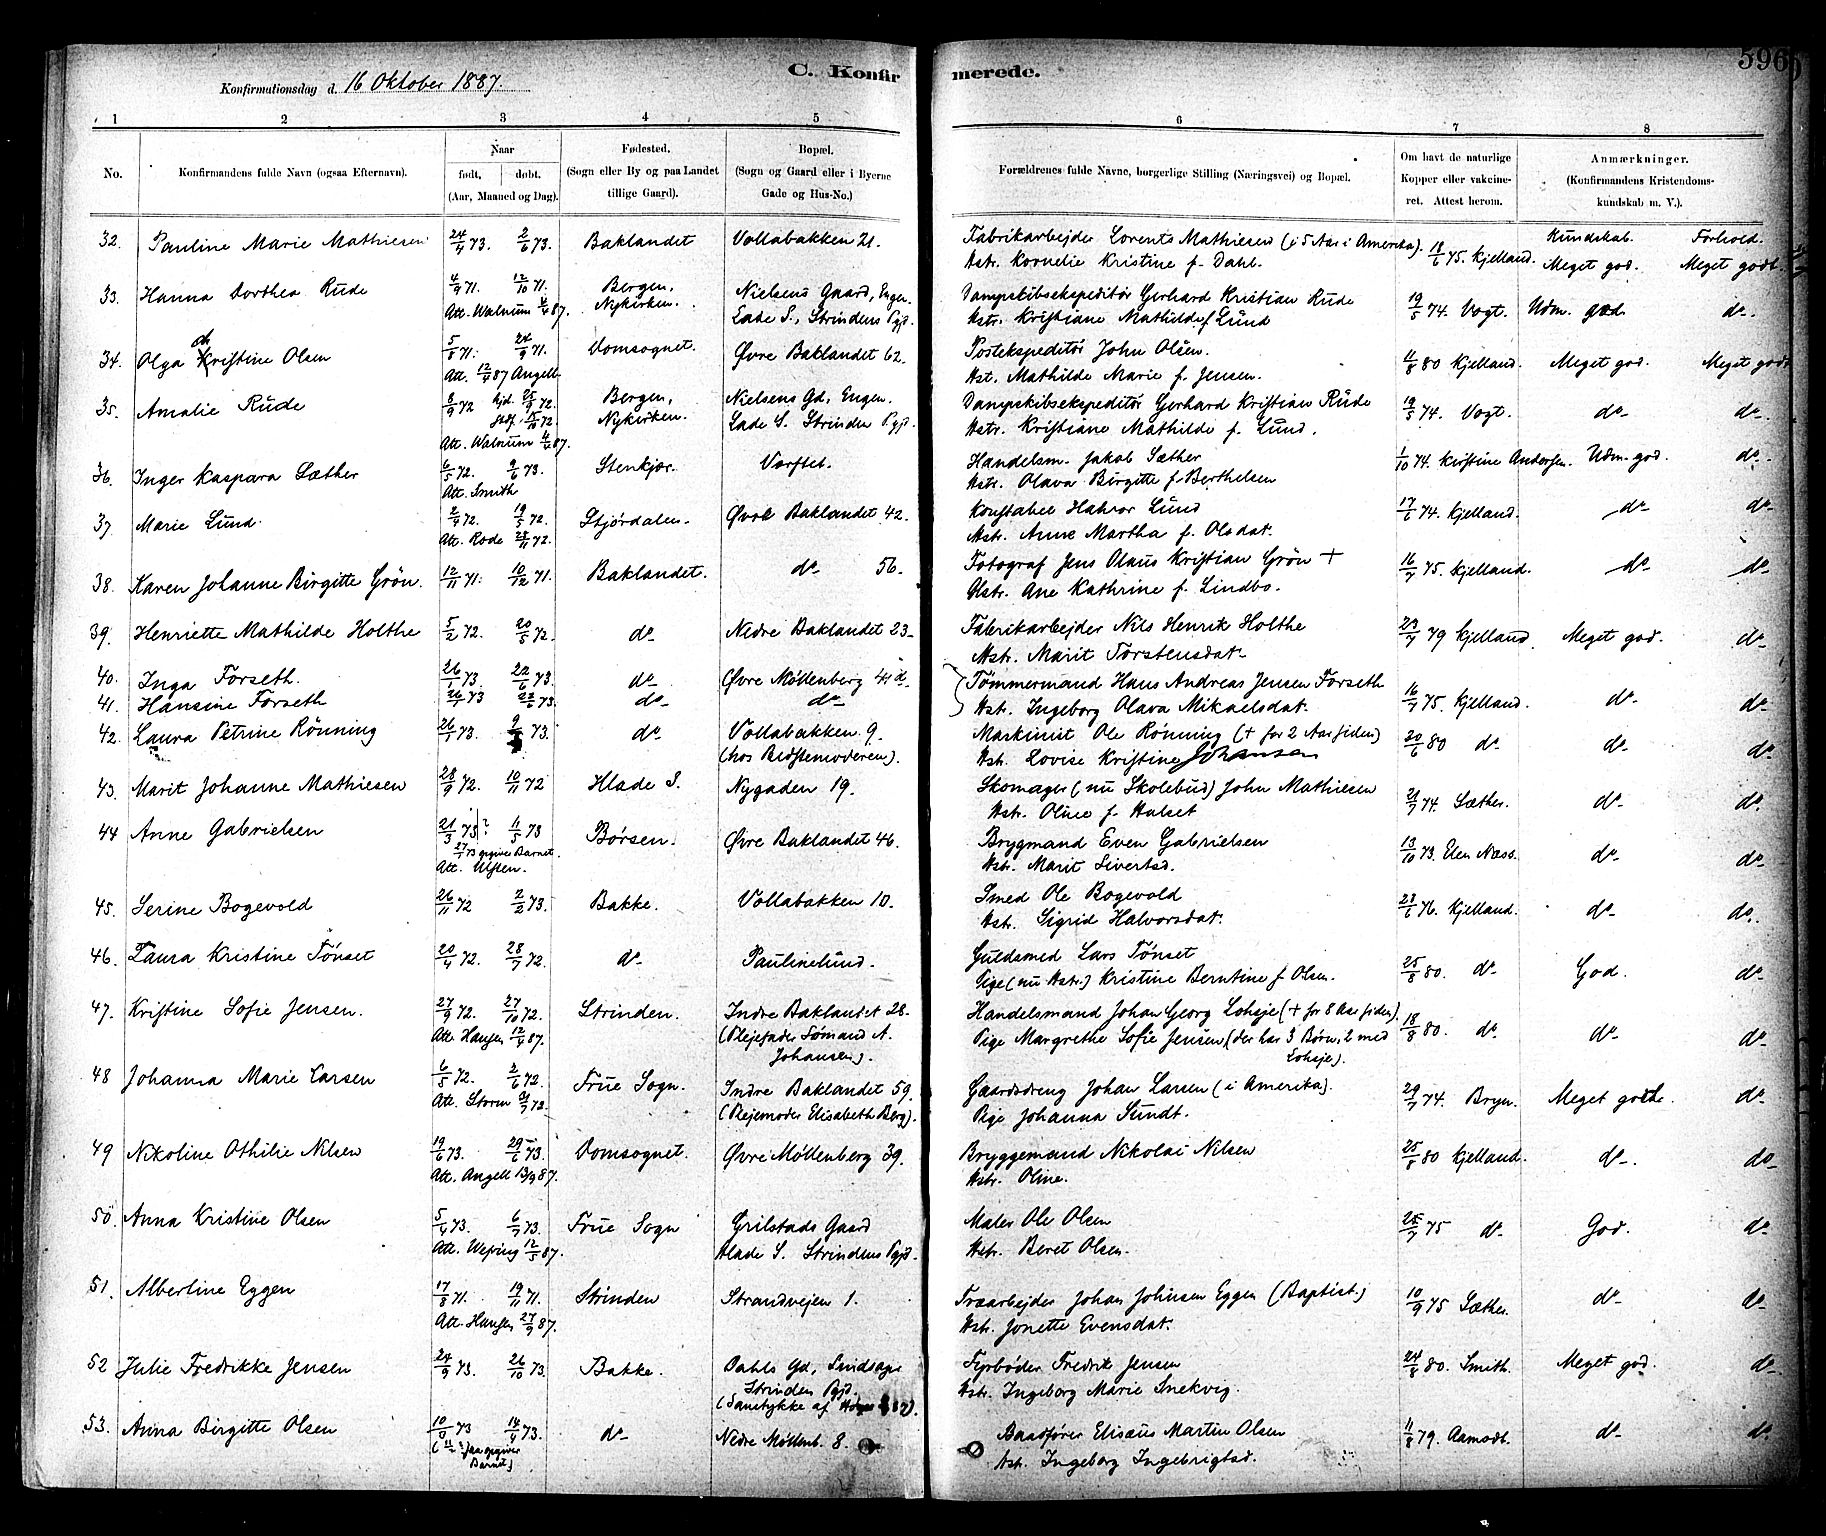 596
C. Konfirmerede.
Konfirmationsdag d. 16 Oktober 1887.
1 2 3 4 5 6 7 8
No. Konfirmandens fulde Navn (ogsaa Efternavn). Naar født, døbt. (Aar, Maaned og Dag). Fødested. (Sogn eller By og paa Landet tillige Gaard). Bopæl. (Sogn og Gaard eller i Byerne Gade og Hus-No.) Forældrenes fulde Navne, borgerlige Stilling (Næringsvei) og Bopæl. Om havt de naturlige Kopper eller vakcineret. Attest herom. Anmærkninger. (Konfirmandens Kristendomskundskab m. V.).
Kundskab. Forhold.
32. Pauline Marie Mathiesen 24/4 73. 2/6 73. Baklandet Vollabakken 21. Fabrikarbejder Lorents Mathiesen (i 5 Aar i Amerika). 18/6 75. Kjelland. Meget god. Meget godt.
Hstr. Kornelie Kristine f. Dahl.
33. Hanna Dorthea Rude 4/9 71. 12/10 71. Bergen, Nielsens Gaard, Engen. Dampskibsekspeditør Gerhard Kristian Rude 19/5 74. Vogt. Udm. god. do.
Att. Walnum 4/4 87. Nykirken. Lade S., Strindens Pgjd. Hstr. Kristiane Mathilde f. Lund
34. Olga Christine Olsen 5/8 71. 24/9 71. Domsognet. Øvre Baklandet 62. Postekspeditør John Olsen. 11/8 80 Kjelland. Meget god. Meget godt
Att. 12/4 87 Angell Hst. Mathilde Marie f. Jensen.
35. Amalie Rude 8/9 72 hjd. 25/9 72. Bergen, Nielsens Gd, Engen. Dampskibsekspeditør Gerhard Kristian Rude 19/5 74. Vogt. do do
Stdf. 15/10 72. Nykirken. Lade S. Strinden Pgjd. Hstr. Kristiane Mathilde f. Lund.
Att. Walnum 4/4 87.
36. Inger Kaspara Sæther 6/5 72. 9/6 73. Stenkjær. Værftet. Handelsm. Jakob Sæther 1/10 74. Kristine Andersen. Udm. god. do
Att. Smith Hstr. Olava Birgitte f. Berthelsen
37. Marie Lund. 2/4 72. 19/5 72. Stjørdalen. Øvre Baklandet 42. Konstabel Halvor Lund 17/6 74. Kjelland. do do
Att. Rode 23/11 72. Hstr. Anne Martha f. Olsdat.
38. Karen Johanne Birgitte Grön. 12/11 71. 10/12 71. Baklandet. do 56. Fotograf Jens Olaus Kristian Grön + 16/7 75. Kjelland. do do
Hstr. Ane Kathrine f. Lindbo.
39. Henriette Mathilde Holthe 5/2 72. 20/5 72. do Nedre Baklandet 23. Fabrikarbejder Nils Henrik Holthe 23/7 79 Kjelland. Meget god. do
Hstr. Marit Torstensdat.
40. Inga Forseth. 26/1 73. 22/6 73. do Øvre Møllenberg 41 d. Tømmermand Hans Andreas Jensen Forseth 16/7 75. Kjelland. do do
41. Hansine Forseth 26/1 73 22/6 73. do do Hstr. Ingeborg Olava Mikaelsdat.
42. Laura Petrine Rönning 26/1 73. 73. do Vollabakken 9. Maskinist Ole Rönning (+ for 2 Aar siden) 20/6 80 do do do
(hos Bedstemoderen). Hstr. Lovise Kristine Johansen
43. Marit Johanne Mathiesen 28/9 72. 10/11 72 Hlade S. Nygaden 19. Skomager (nu Skolebud) John Mathiesen 21/7 74. Sæther. do do
Hstr. Oline f. Halset
44 Anne Gabrielsen 21/3 73? 11/5 73 Børsen. Øvre Baklandet 46. Brygmand Even Gabrielsen 13/10 73. Elen Næss. do do
27/1 73 opgiver Barnet. Att. Ulsten. Hstr. Marit Sivertsd.
45. Serine Bogevold 26/11 72 2/2 73. Bakke. Vollabakken 10. Smed Ole Bogevold 23/6 76. Kjelland. do do.
Hstr. Sigrid Halvorsdat.
46. Laura Kristine Tönset 20/4 72. 28/7 72. do Paulinelund. Guldsmed Lars Tönset 25/8 80. do God. do
Pige (nu Hstr.) Kristine Berntine f. Olsen.
47. Kristine Sofie Jensen. 27/9 72. 27/10 72. Strinden. Indre Baklandet 28. Handelsmand Johan Georg Lohsje (+ for 8 Aar siden). 18/8 80. do do do
Att. Hansen 12/4 87. (Plejefader Sømand A. Johansen). Pige Margrethe Sofie Jensen (der har 3 Børn, 2 med Lohsje).
48 Johanna Marie Larsen 6/5 72. 2/6 72. Frue Sogn. Indre Baklandet 59. Gaardsdreng Johan Larsen (i Amerika). 29/7 74. Bryn. Meget god. do
Att. Storm 21/7 72. (Plejemoder Elisabeth Berg). Pige Johanna Sundt.
49 Nikoline Othilie Nilsen 19/6 73. 29/6 73. Domsognet. Øvre Møllenberg 39. Bryggemand Nikolai Nilsen 25/8 80 Kjelland. do. do
Att. Angell 13/9 87. Hstr. Oline.
50. Anna Kristine Olsen 5/4 73. 6/7 73. Frue Sogn Grilstads Gaard Maler Ole Olsen 25/7 75 do God. do
Att. Wexing 12/5 87. Hlade S. Strindens Pgjd. Hstr. Beret Olsen.
51. Albertine Eggen 17/8 71. 19/11 71. Strinden Strandvejen 1. Træarbejder Johan Johnsen Eggen (Baptist) 10/9 75 Sæther. do do
Att. Hansen 27/9 87. Hstr. Jonette Evensdat.
52 Julie Fredrikke Jensen 24/9 73. 26/10 73. Bakke. Dahls Gd, Fyrbøder Fredrik Jensen 24/8 80. Smith. Meget god. do
Strinden Pgjd. Hstr. Ingeborg Marie Snekvig.
(Samtykke af
53. Anna Birgitte Olsen 10/9 73 14/4 73. do Nedre Møllenb. 8. Baadfører Elisæus Martin Olsen 11/8 79. Aamodt. do do
opgiver Barnet) Hstr. Ingeborg Ingebrigtsd.